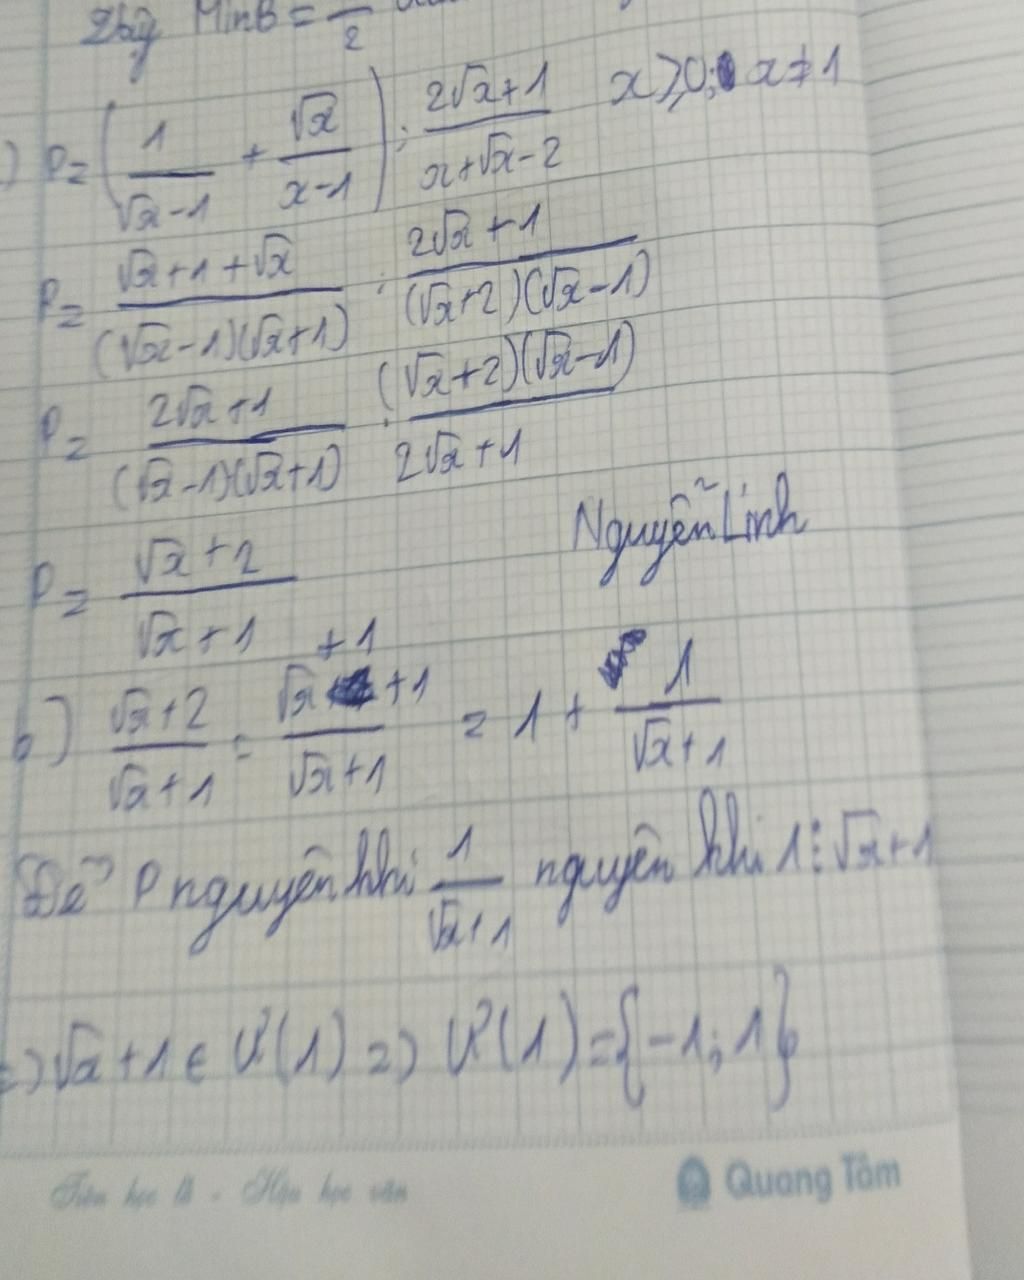 MinB = /2
) P = (1/(√x-1) + √x/(x-1)) : (2√x+1)/(x+√x-2) x ⩾ 0; x ≠ 1
P = (√x+1+√x)/((√x-1)(√x+1)) : (2√x+1)/((√x+2)(√x-1))
P = (2√x+1)/((√x-1)(√x+1)) . ((√x+2)(√x-1))/(2√x+1)
P = (√x+2)/(√x+1)
Nguyễn Linh
b) (√x+2)/(√x+1) = (√x+1+1)/(√x+1) = 1 + 1/(√x+1)
Để P nguyên khi 1/(√x+1) nguyên khi 1 ⋮ √x+1
=) √x+1 ∈ Ư(1) =) Ư(1) = {-1; 1}
Tiên học lễ - Hậu học văn
Quang Tâm